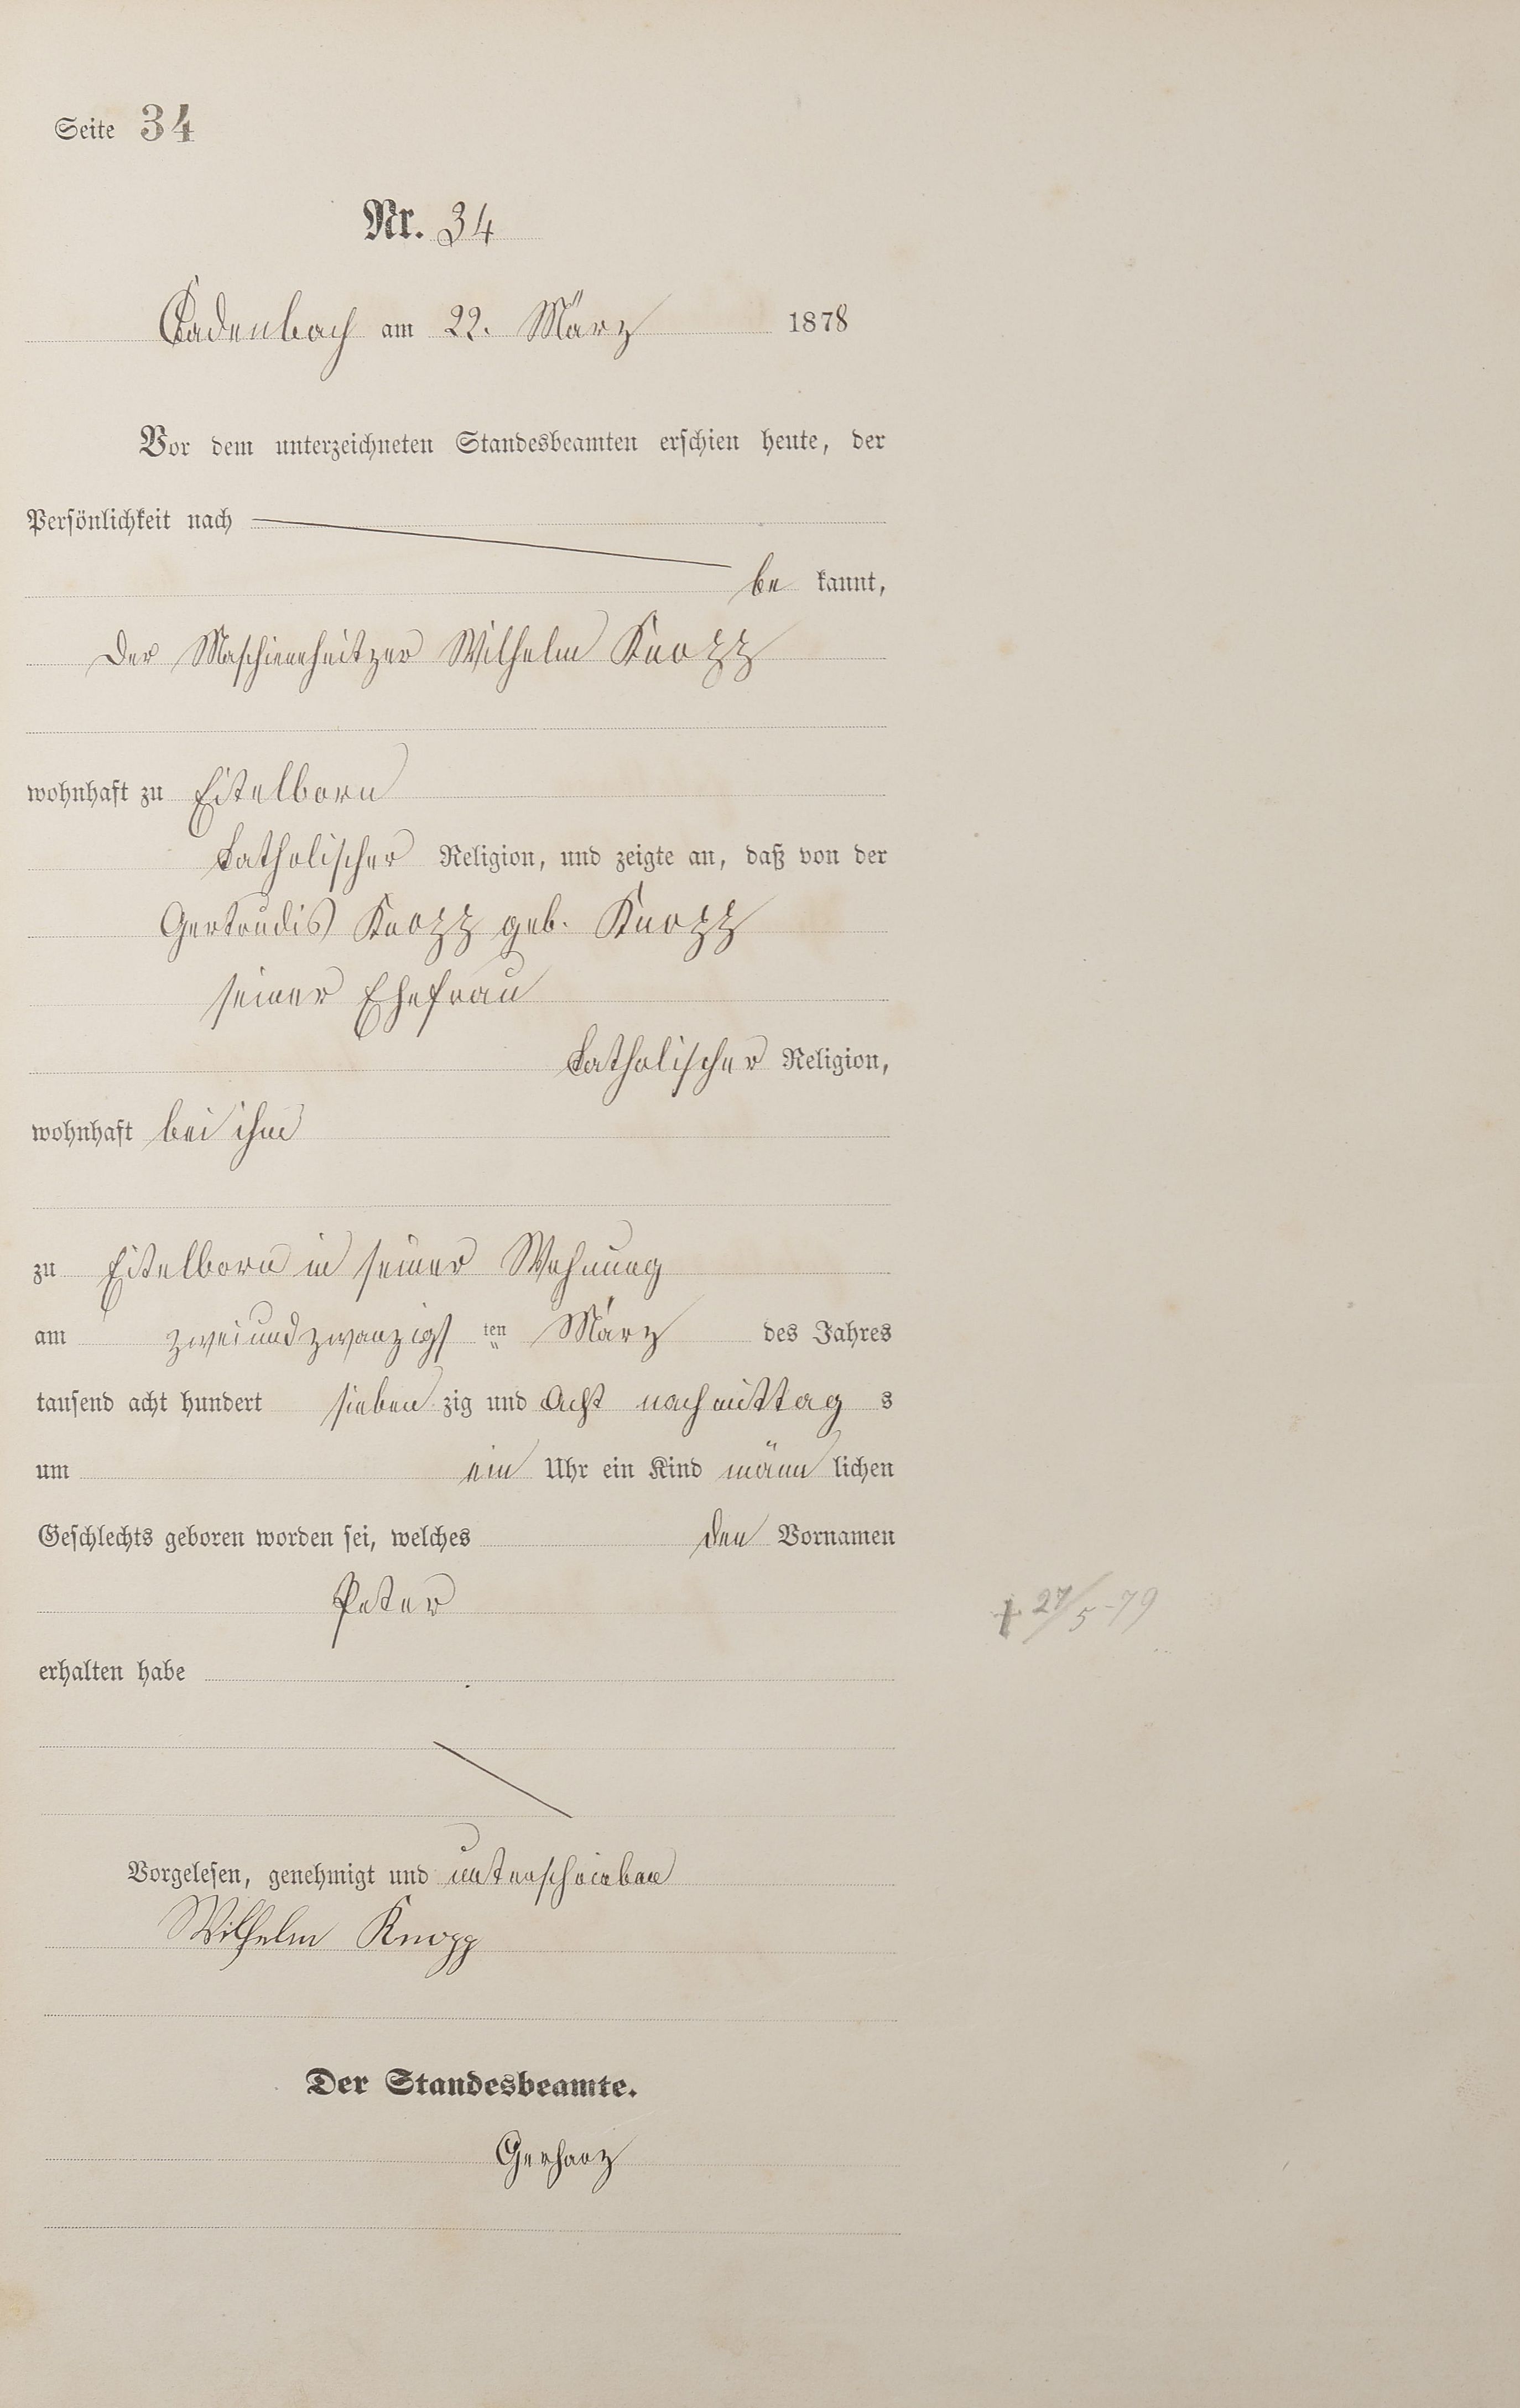 Seite 34
Nr. 34
Cadenbach am 22. März 1878
Vor dem unterzeichneten Standesbeamten erschien heute, der
Persönlichkeit nach
be kannt,
der Maschienheitzer Wilhelm Knopp
wohnhaft zu Eitelborn
katholischer Religion, und zeigte an, daß von der
Gertrudis Knopp geb. Knopp
seiner Ehefrau
katholischer Religion,
wohnhaft bei ihm
zu Eitelborn in seiner Wohnung
am zweiundzwanzigst ten März des Jahres
tausend acht hundert sieben zig und acht nachmittag s
um ein Uhr ein Kind männ lichen
Geschlechts geboren worden sei, welches den Vornamen
Peter
+ 27/5-79
erhalten habe
Vorgelesen, genehmigt und unterschrieben
Wilhelm Knopp
Der Standesbeamte.
Gerharz